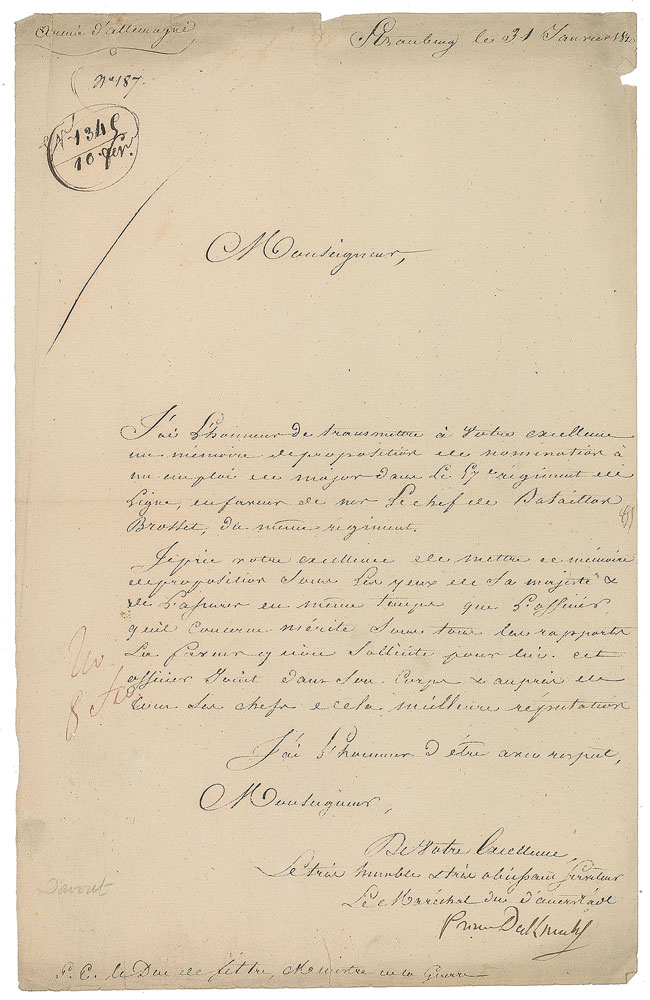 Armée d'allemagne
Straubing le 31 Janvier 181
N° 187.
N° 1345
10 fév.
Monseigneur,
J'ai l'honneur de transmettre à votre excellence
un mémoire de proposition de nomination à
un emploi de major dans le 57e régiment de
Ligne, en faveur de mr le chef de Bataillon
Brosset, du même regiment.
Je prie votre excellence de mettre ce mémoire
de proposition sous les yeux de sa majesté &
de l'assurer en même temps que l'officier
qu'il concerne mérite sous tous les rapports
la faveur qu'on sollicite pour lui. cet
officier jouit dans son Corps & auprès de
tous ses chefs de la meilleure réputation
J'ai l'honneur d'être avec respect,
Monseigneur,
De Votre Excellence,
Le très humble & très obéissant Serviteur
Le Maréchal duc d'auerstädt
Prince D'eckmuhl
Davout
S. E. le Duc de feltre, Ministre de la Guerre